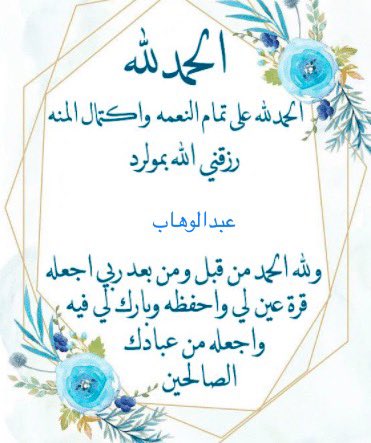 الحمدلله
الحمدلله على تمام النعمه واكتمال المنه
رزقني الله بمولرد
عبدالوهاب
ولله الحمد من قبل ومن بعد ربي اجعله
قرة عين لي واحفظه وبارك لي فيه
واجعله من عبادك
الصالحين